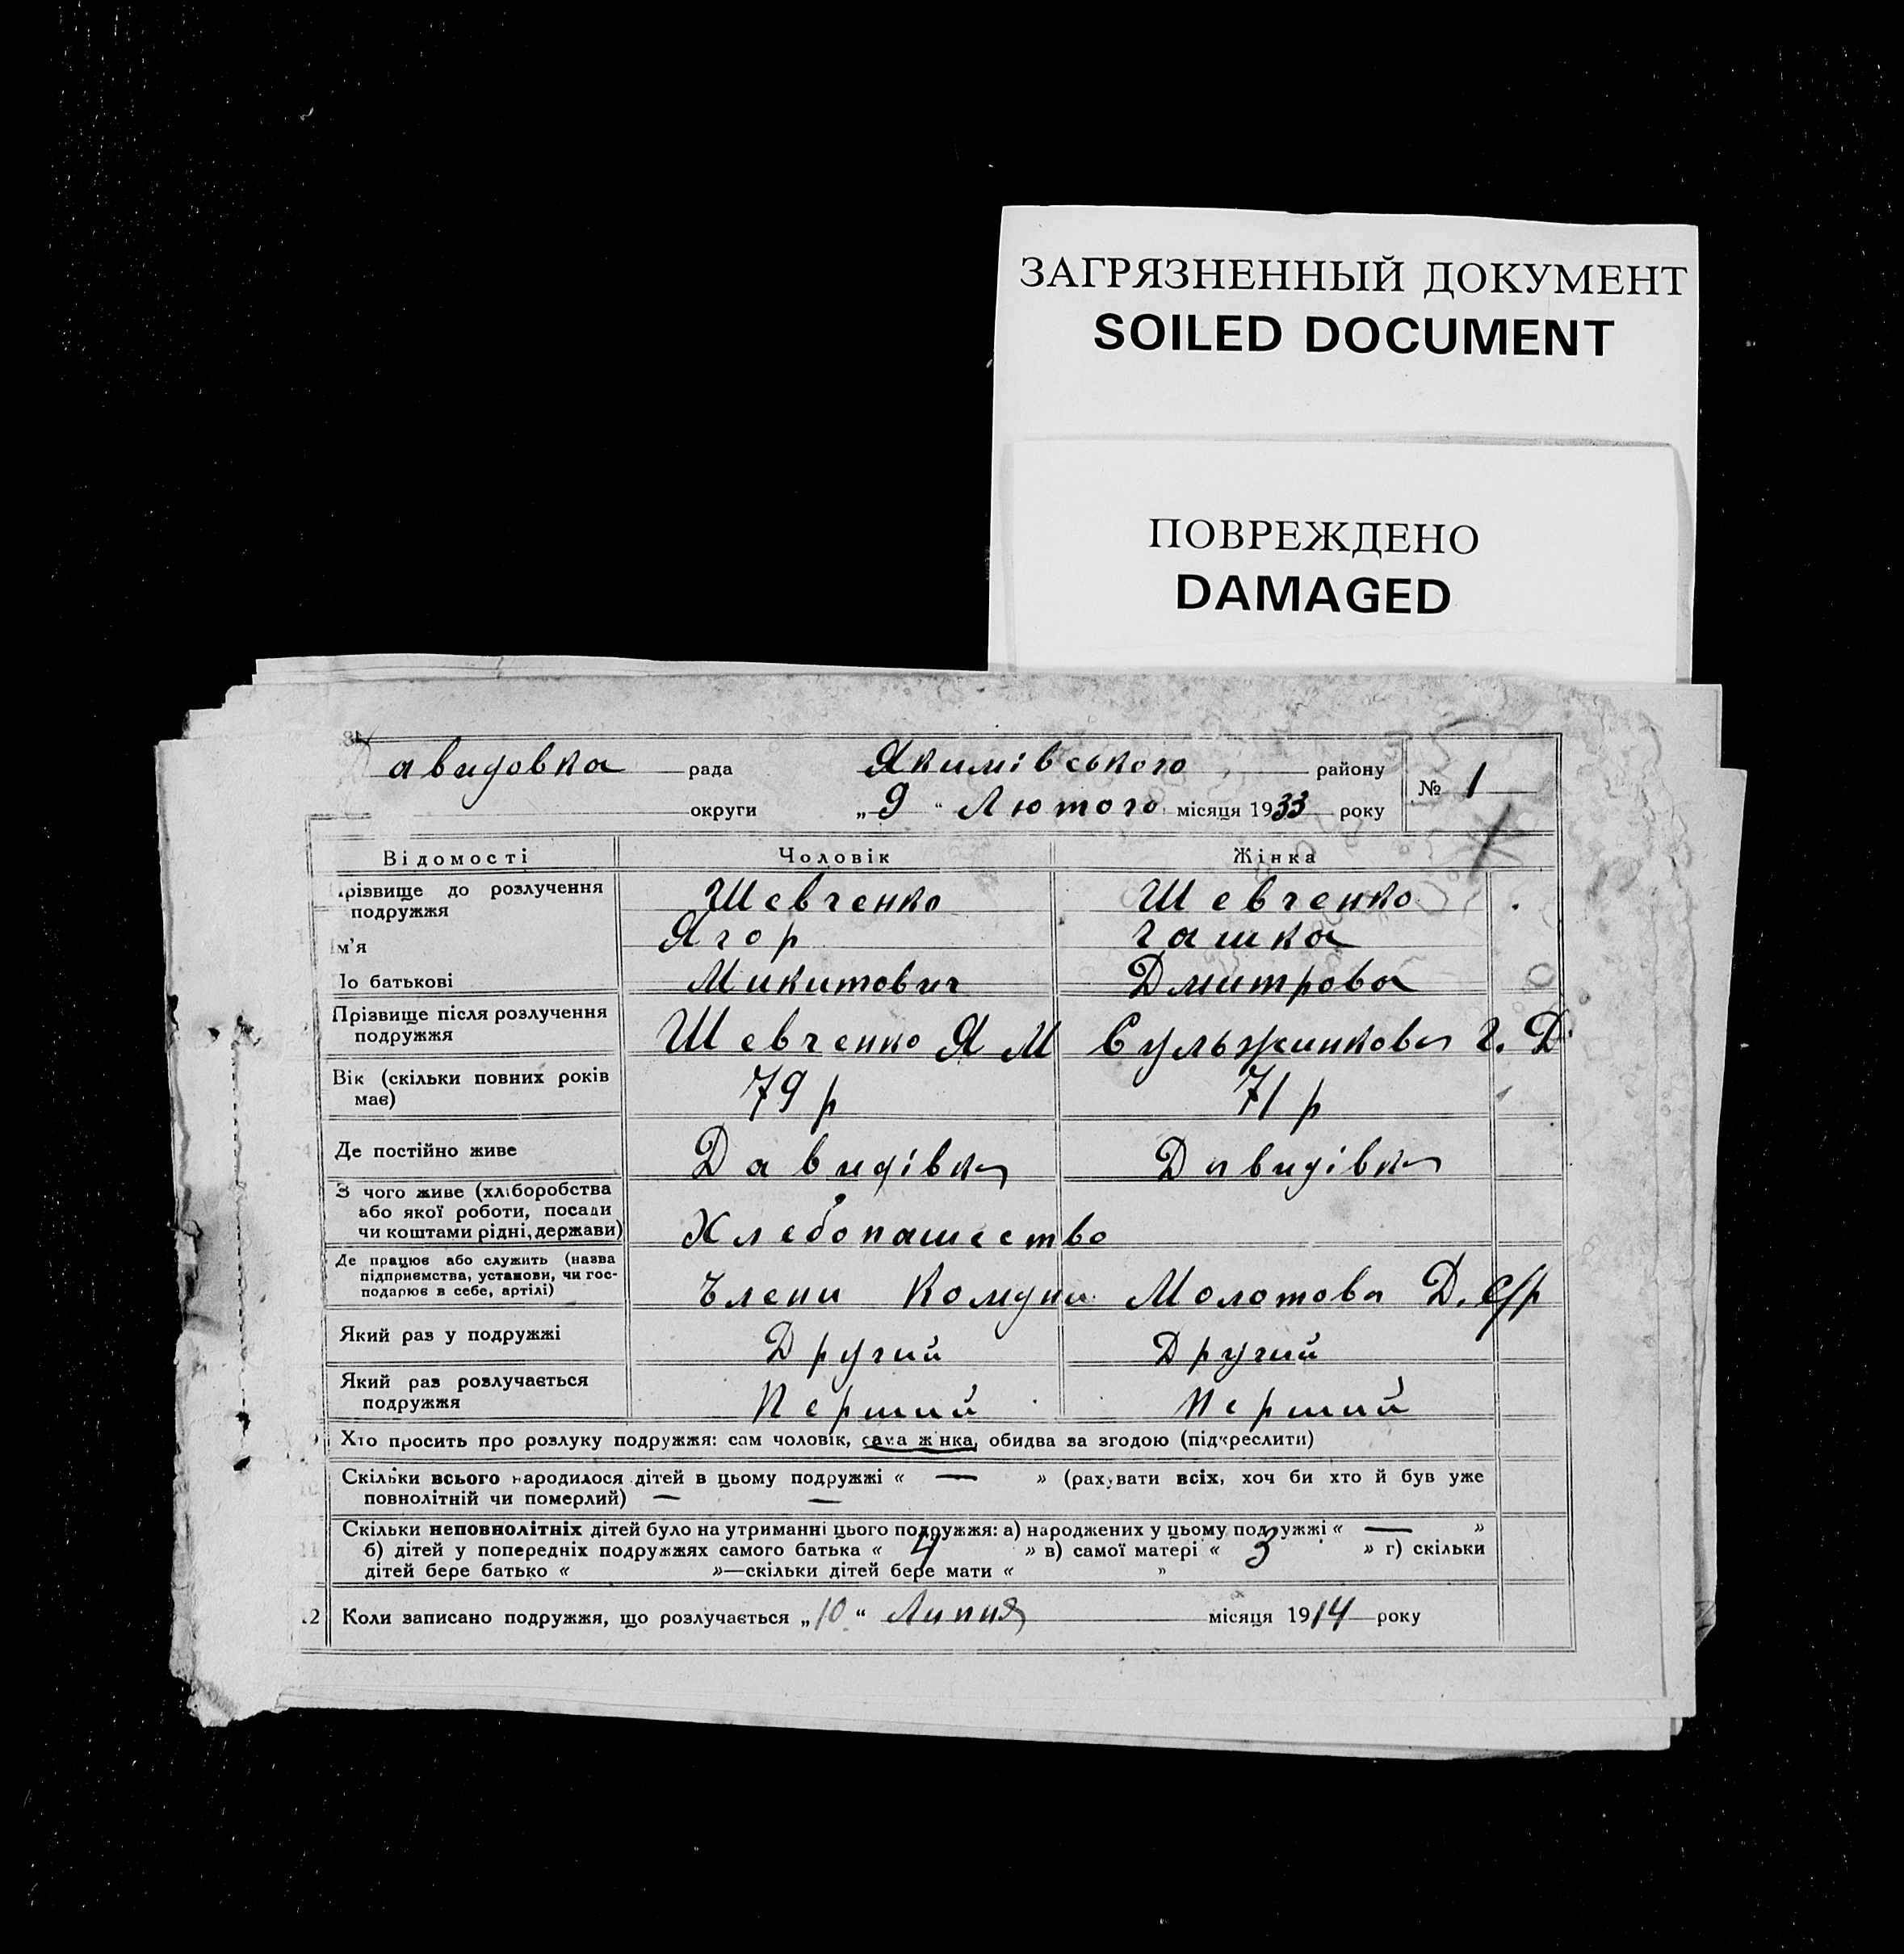 ЗАГРЯЗНЕННЫЙ ДОКУМЕНТ
SOILED DOCUMENT
ПОВРЕЖДЕНО
DAMAGED
авидовка рада Якимівського району № 1
округи „9“ Лютого місяця 1933 року
Відомості Чоловік Жінка
різвище до розлучення подружжя Шевченко Шевченко
м'я Ягор Гашка
о батькові Микитович Дмитрова
Прізвище після розлучення подружжя Шевченко Я М Сульжинкова Г. Д.
Вік (скільки повних років має) 79 р 71 р
Де постійно живе Давидівка Давидівка
З чого живе (хліборобства
або якої роботи, посади
чи коштами рідні, держави) Хлебопашество
Де працює або служить (назва
підприємства, установи, чи гос-
подарює в себе, артілі) Члени Комуни Молотова Д. с/р
Який раз у подружжі Другий Другий
Який раз розлучається подружжя Перший Перший
Хто просить про розлуку подружжя: сам чоловік, сама жінка, обидва за згодою (підкреслити)
Скільки всього народилося дітей в цьому подружжі « — » (рахувати всіх, хоч би хто й був уже
повнолітній чи померлий) — —
11 Скільки неповнолітніх дітей було на утриманні цього подружжя: а) народжених у цьому подружжі « — »
б) дітей у попередніх подружжях самого батька « 4 » в) самої матері « 3 » г) скільки
дітей бере батько « »—скільки дітей бере мати « »
2 Коли записано подружжя, що розлучається „10“ Липня місяця 1914 року